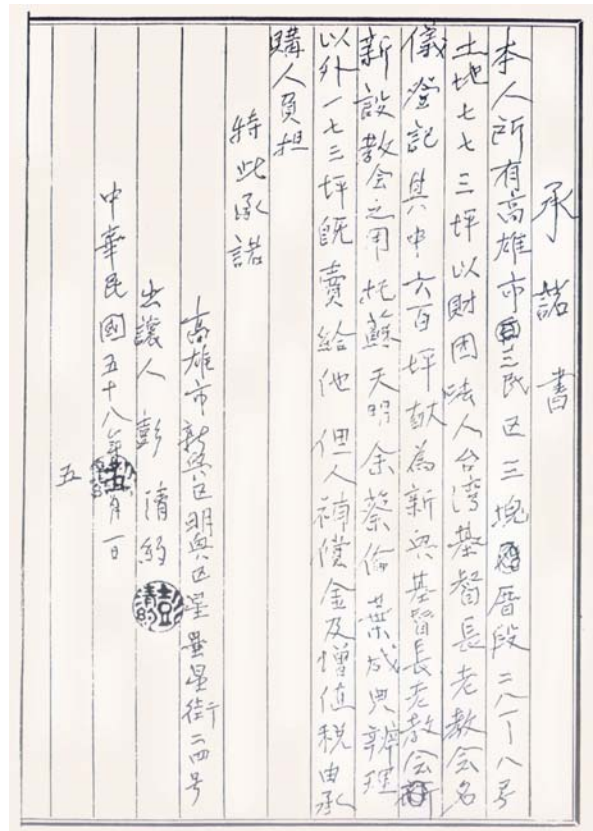 承諾書
本人所有高雄市三民区三塊厝段二八一八号
土地七七三坪以財团法人台湾基督長老教会名
儀登記其中六百坪献為新兴基督長老教会
新設教会之用托蘇天明余蔡倫葉成典辨理
以外一七三坪既賣給他但人補償金及增值税由承
購人負担
特此承諾
高雄市新興区明興区星星街二四号
出讓人彭清約
中華民國五十八年五月一日
五